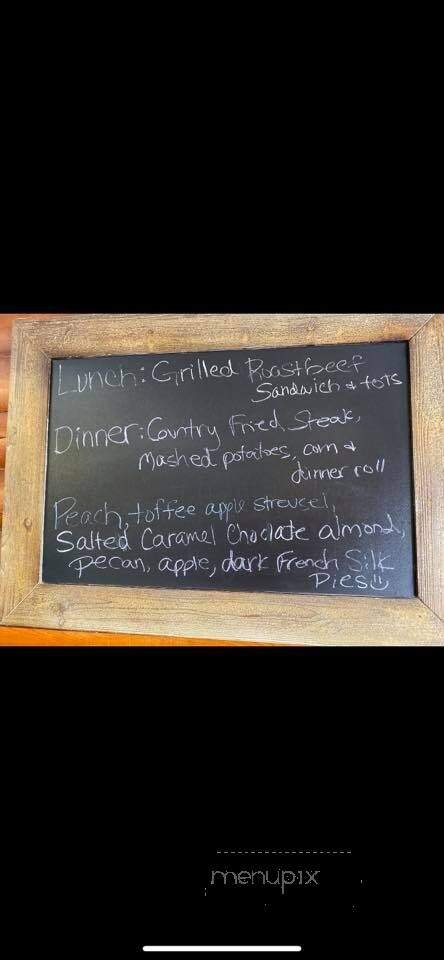 Lunch: Grilled Roastbeef
Sandwich & tots
Dinner: Country Fried Steak,
Mashed potatoes, corn &
dinner roll
Peach, toffee apple streusel,
Salted Caramel Choclate almond,
pecan, apple, dark French Silk
Pies
menupix